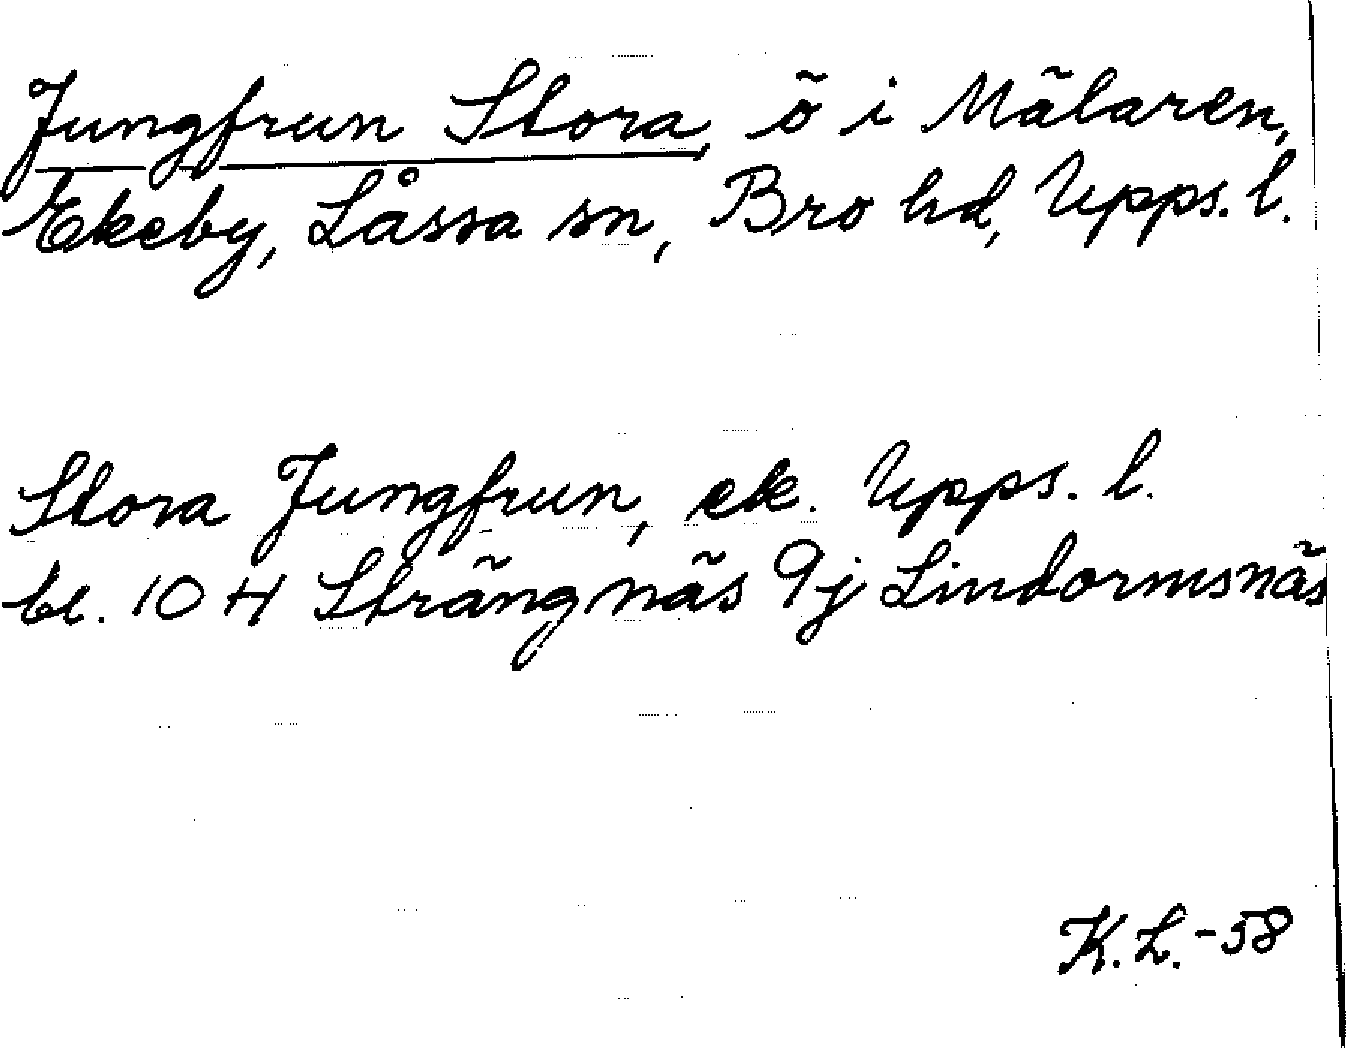 Jungfrun Stora, ö i Mälaren,
Ekeby, Låssa sn, Bro hd, Upps. l.
Stora Jungfrun, ek. Upps. l.
bl. 10 H Strängnäs 9j Lindormsnäs
K.L.-58